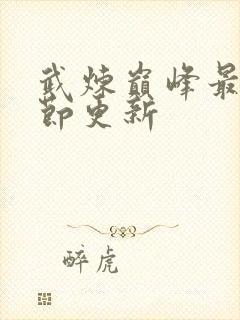 武炼巅峰最
节更新
醉虎